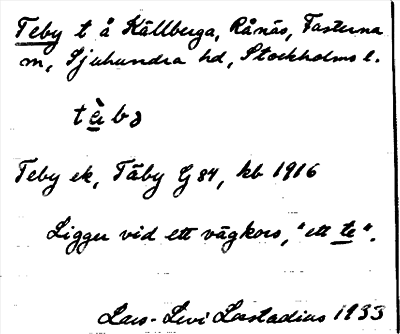 Teby t å Källberga, Rånäs, Fasterna
m, Sjuhundra hd, Stockholms l.
tȅbə
Teby ek, Täby G 84, kb 1916
Ligger vid ett vägkors, "ett te".
Lars-Levi Læstadius 1933